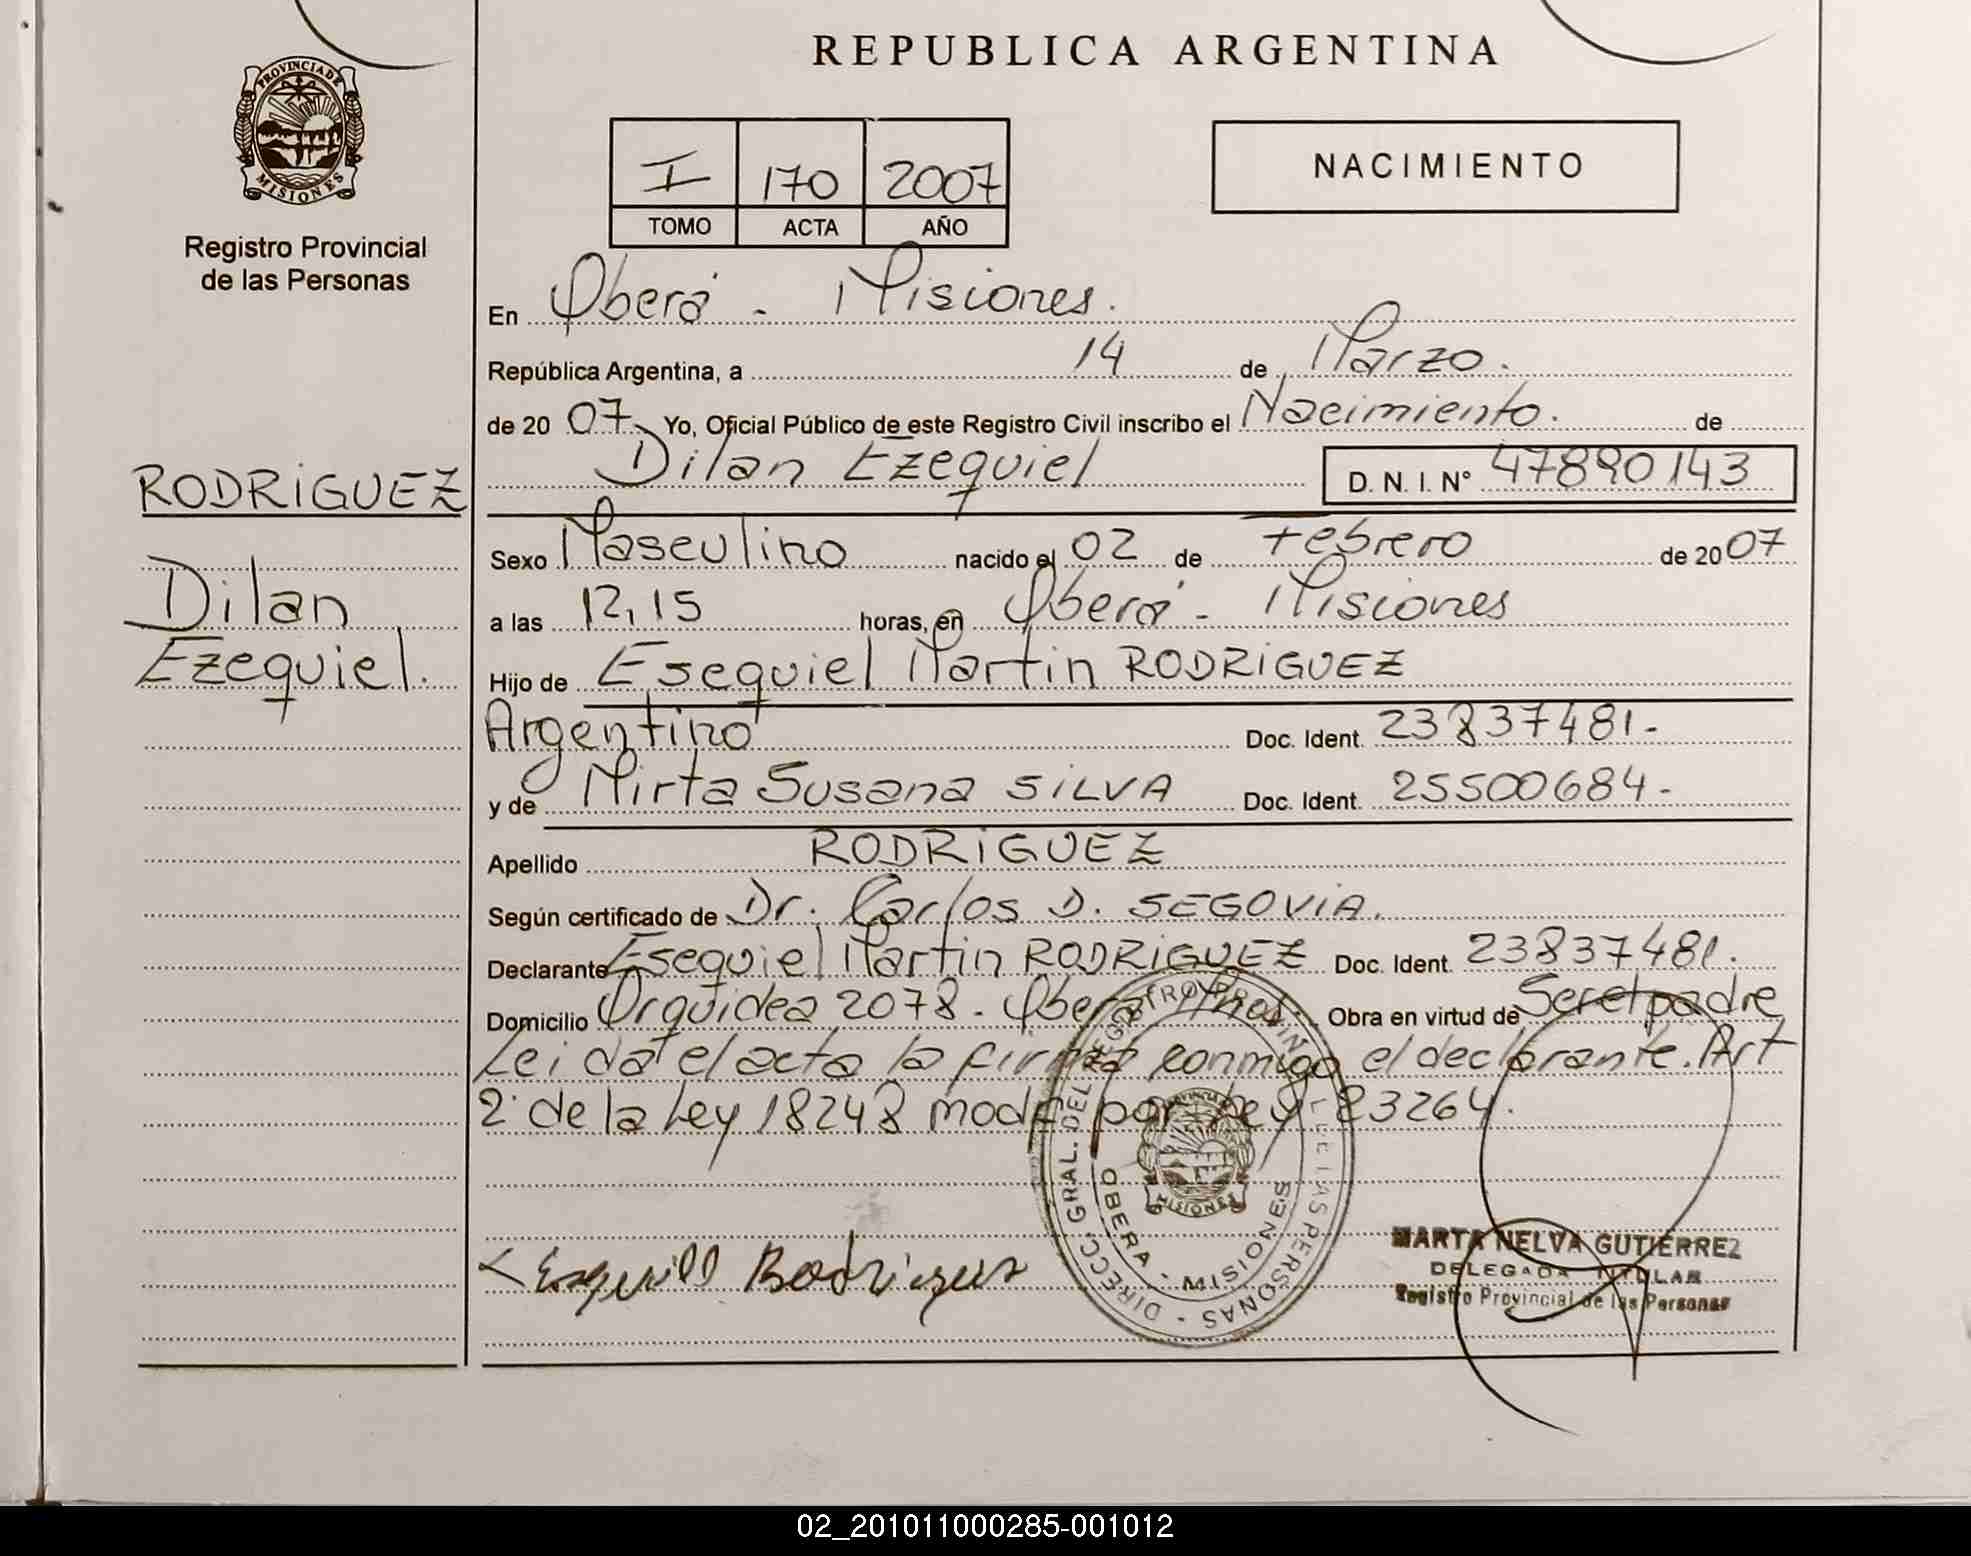 REPUBLICA ARGENTINA
PROVINCIA DE
MISIONES
Registro Provincial
de las Personas
I 170 2007
TOMO ACTA AÑO
NACIMIENTO
En Oberá - Misiones.
República Argentina, a 14 de Marzo.
de 20 07 Yo, Oficial Público de este Registro Civil inscribo el Nacimiento. de
Dilan Ezequiel D. N. I. N° 47890143
RODRIGUEZ
Dilan
Ezequiel.
Sexo Masculino nacido el 02 de Febrero de 20 07
a las 12,15 horas, en Oberá - Misiones
Hijo de Esequiel Martin RODRIGUEZ
Argentino Doc. Ident. 23837481.-
y de Mirta Susana SILVA Doc. Ident. 25500684.-
Apellido RODRIGUEZ
Según certificado de Dr. Carlos D. SEGOVIA.
Declarante Esequiel Martin RODRIGUEZ Doc. Ident. 23837481.
Domicilio Orquidea 2078. Oberá Mnes. Obra en virtud de Ser el padre
Leida el acta la firma conmigo el declarante. Art
2° de la Ley 18248 modf por Ley 23264.
DIRECC. GRAL. DEL REGISTRO PROVINCIAL DE LAS PERSONAS
OBERA - MISIONES
MISIONES
Esequiel Rodriguez
MARTA NELVA GUTIERREZ
DELEGADA TITULAR
Registro Provincial de las Personas
02_201011000285-001012